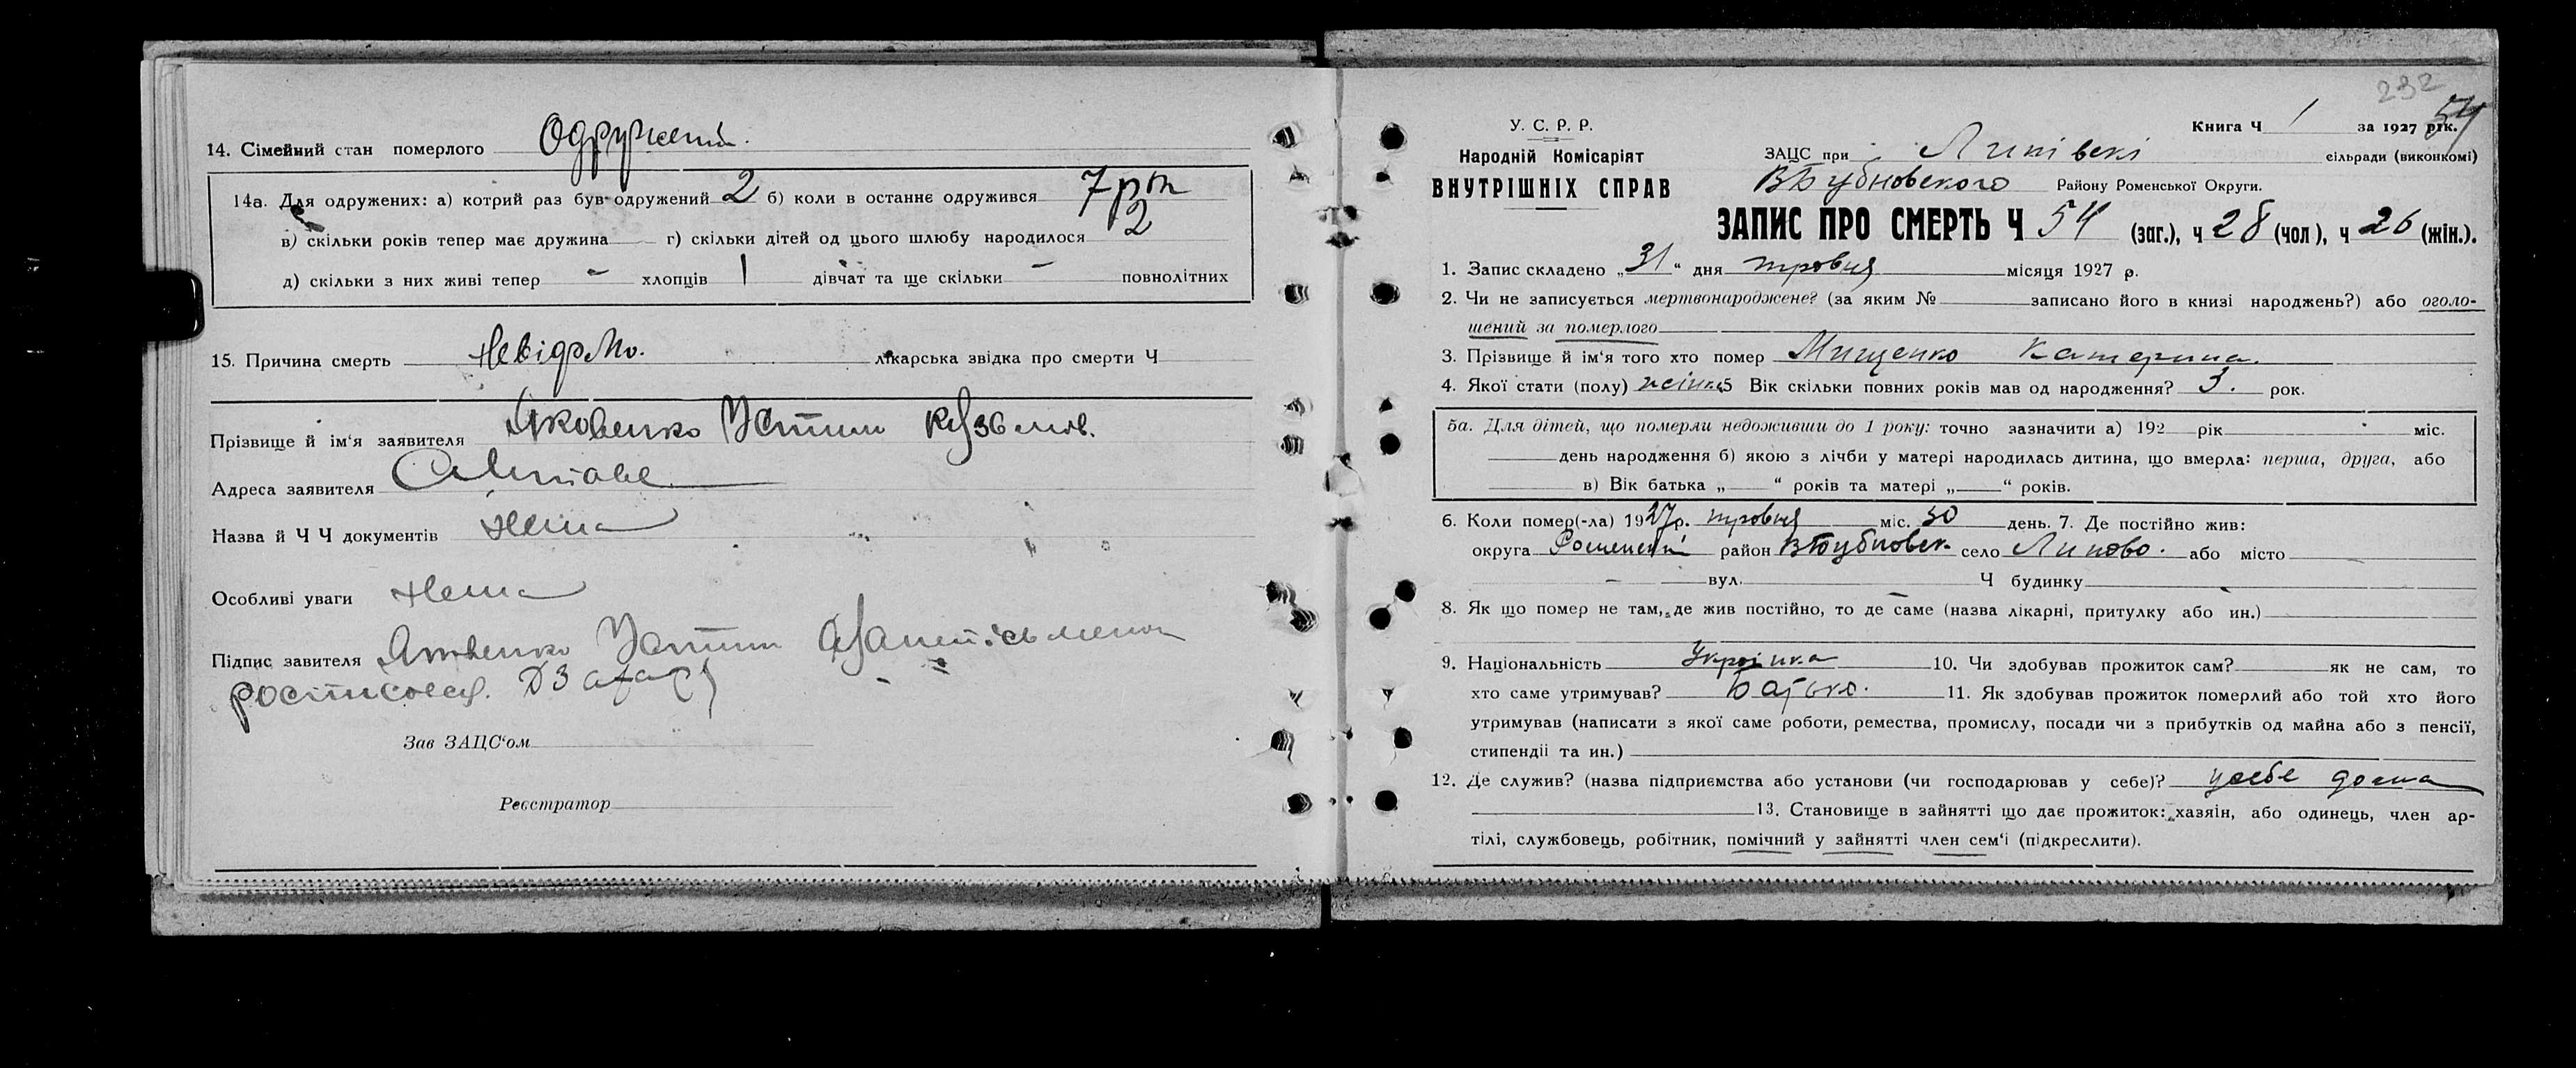 14. Сімейний стан померлого Одружений.
14а. Для одружених: а) котрий раз був одружений 2 б) коли в останнє одружився 7 рок
в) скільки років тепер має дружина — г) скільки дітей од цього шлюбу народилося 2
д) скільки з них живі тепер – хлопців 1 дівчат та ще скільки – повнолітних
15. Причина смерть Невідомо. лікарська звідка про смерти Ч
Прізвище й ім'я заявителя Яковенко Устим Кузьмов.
Адреса заявителя
Назва й Ч Ч документів Нема
Особливі уваги Нема
Підпис завителя Яковенко Устим
Зав ЗАЦС'ом
Реєстратор
232
54
У. С. Р. Р.
Книга Ч 1 за 1927 рік.
Народній Комісаріят
ВНУТРІШНІХ СПРАВ
ЗАЦС при Липівські сільради (виконкомі)
ВБубновского Району Роменської Округи.
ЗАПИС ПРО СМЕРТЬ Ч 54 (заг.), ч 28 (чол), ч 26 (жін.).
1. Запис складено „31" дня травня місяця 1927 р.
2. Чи не записується мертвонароджене? (за яким № записано його в книзі народжень?) або оголо-
шений за померлого
3. Прізвище й ім'я того хто помер Мищенко Катерина.
4. Якої стати (полу) жіноч 5 Вік скільки повних років мав од народження? 3. рок.
5а. Для дітей, що померли недоживши до 1 року: точно зазначити а) 192 рік міс.
день народження б) якою з лічби у матері народилась дитина, що вмерла: перша, друга, або
в) Вік батька „ " років та матері „ " років.
6. Коли помер(-ла) 1927р. травня міс. 30 день. 7. Де постійно жив:
округа Роменський район ВБубновск село Липово. або місто
— вул. Ч будинку
8. Як що помер не там, де жив постійно, то де саме (назва лікарні, притулку або ин.)
9. Національність Українка 10. Чи здобував прожиток сам? як не сам, то
хто саме утримував? Батько. 11. Як здобував прожиток померлий або той хто його
утримував (написати з якої саме роботи, ремества, промислу, посади чи з прибутків од майна або з пенсії,
стипендії та ин.)
12. Де служив? (назва підприємства або установи (чи господарював у себе)? у себе дома
13. Становище в зайнятті що дає прожиток: хазяїн, або одинець, член ар-
тілі, службовець, робітник, помічний у зайнятті член сем'ї (підкреслити).